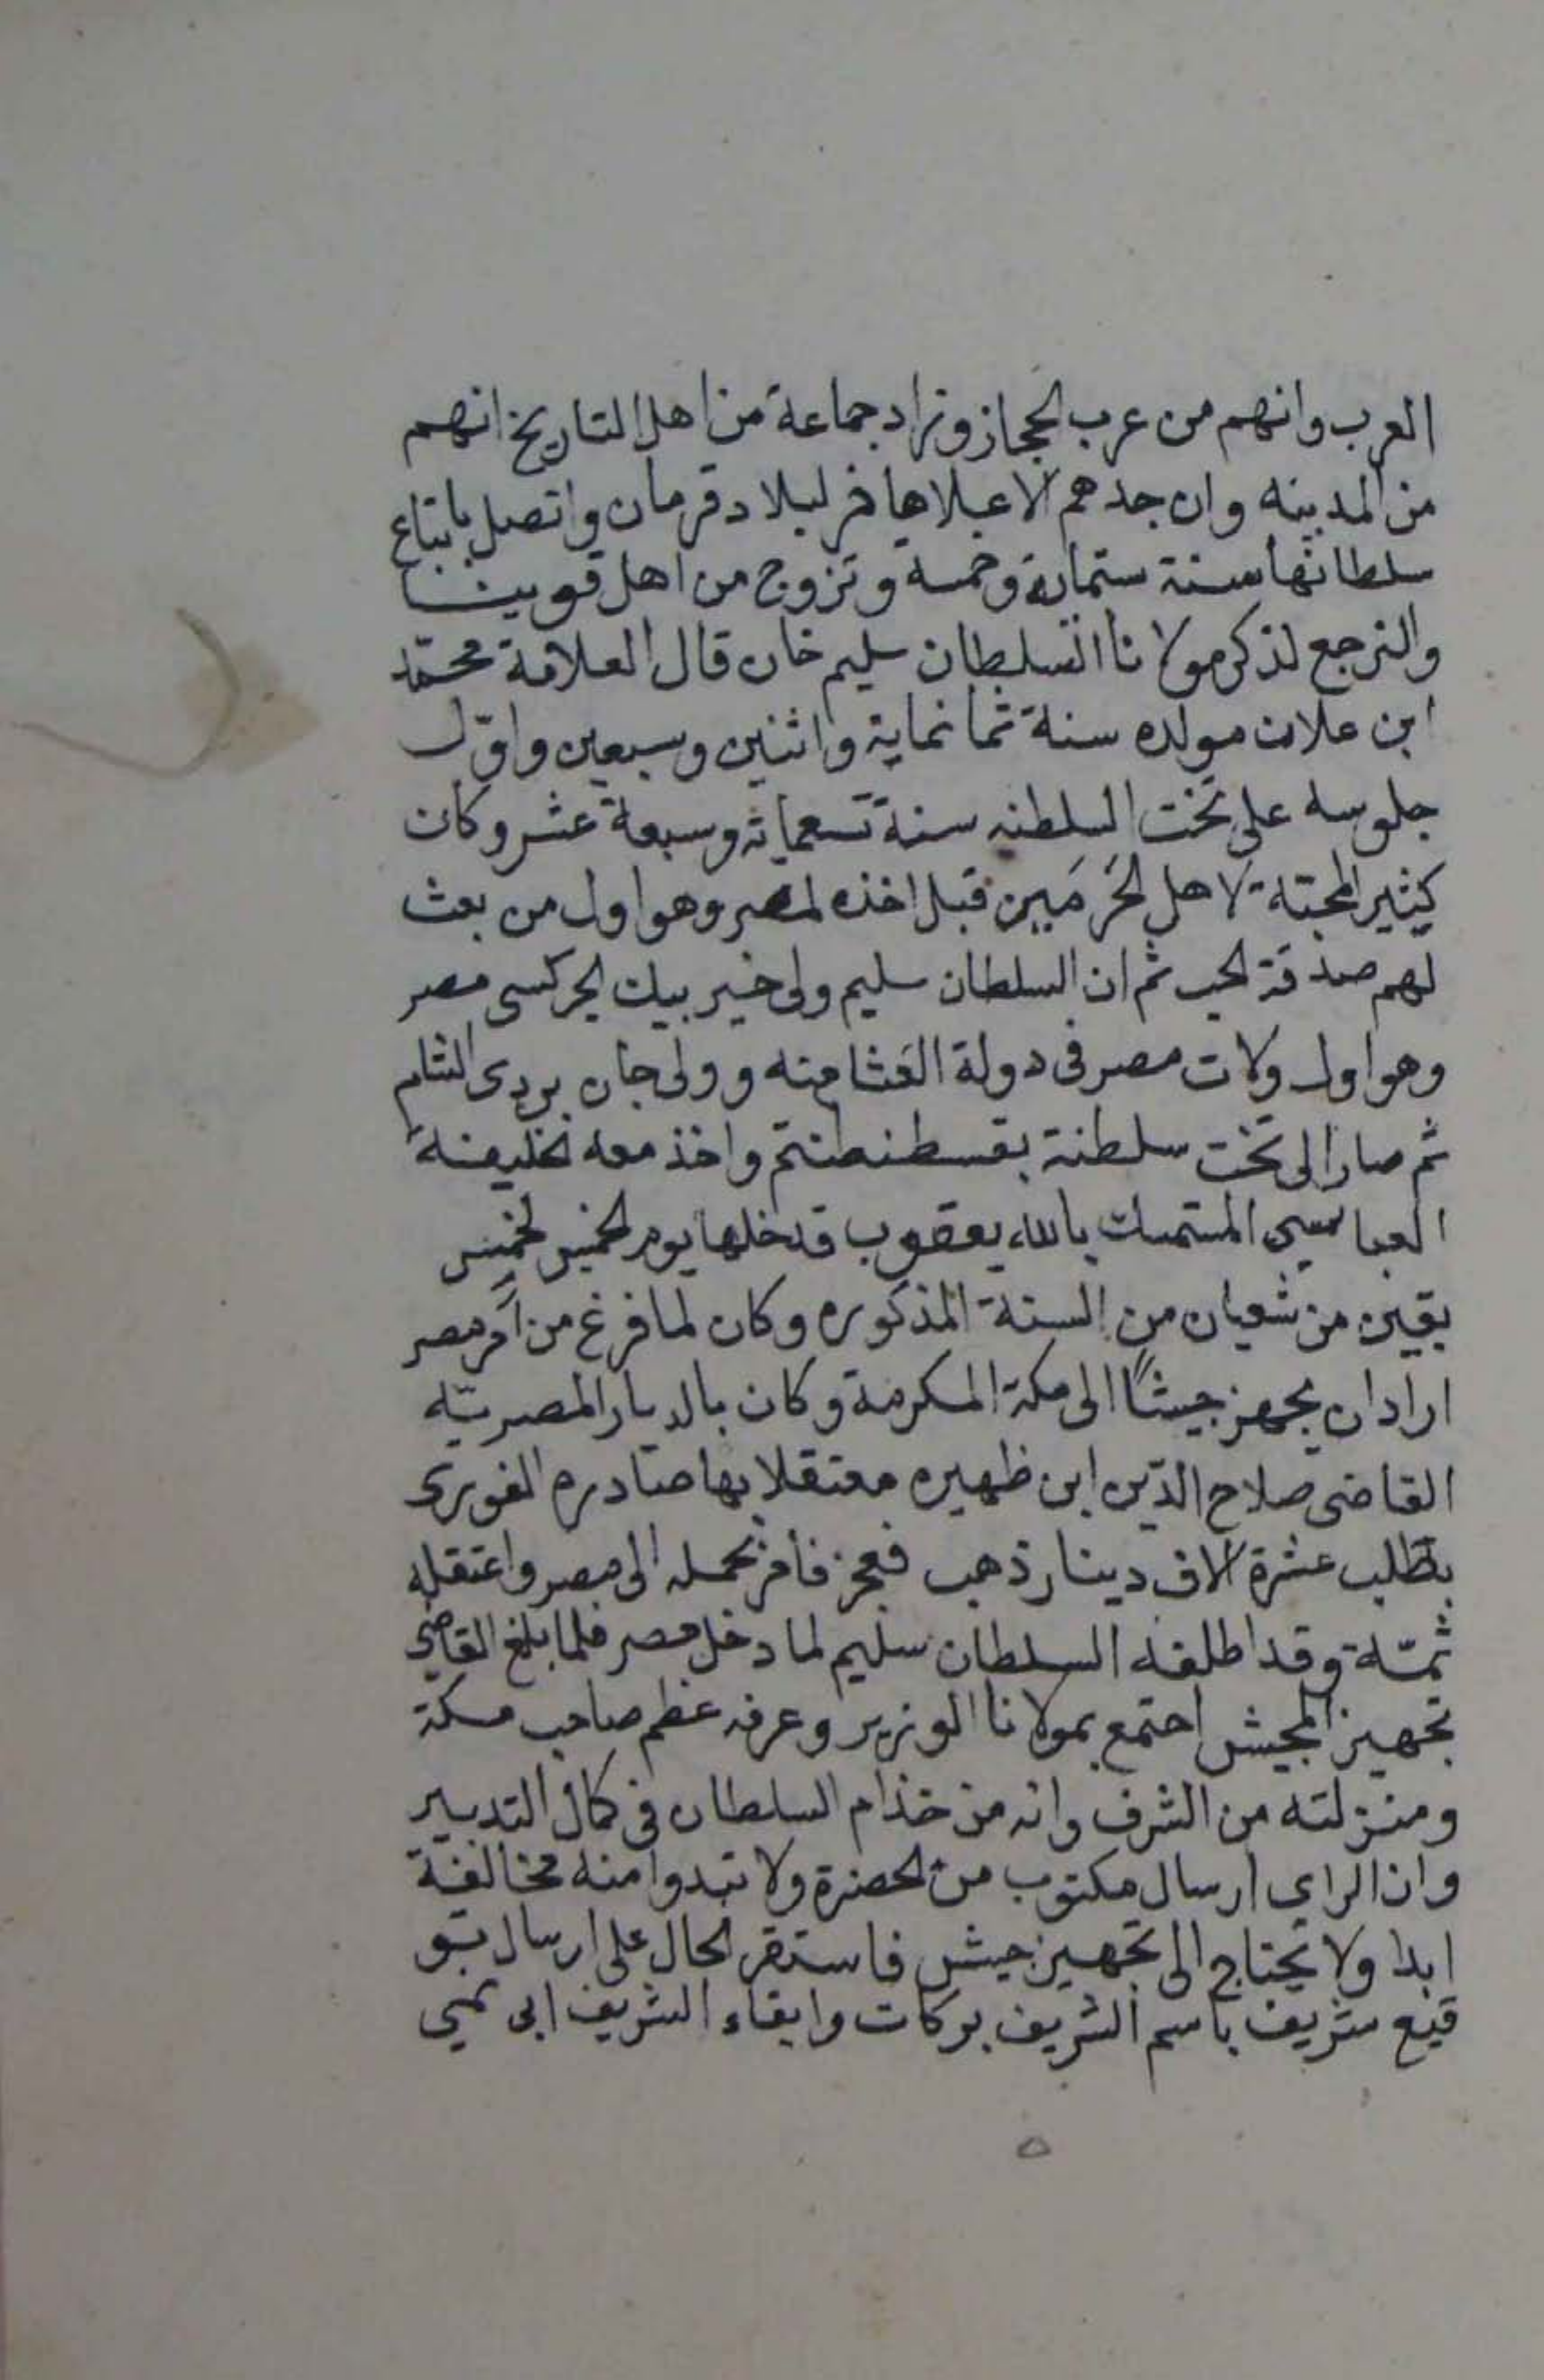 العرب وانهم من عرب الحجاز وزاد جماعة من اهل التاريخ انهم
من المدينه وان جدهم الاعلاها فر لبلاد قرمان واتصل باتباع
سلطانها سنة ستماية وخمسة وتزوج من اهل قوينا
والنرجع لذكر مولانا السلطان سليم خان قال العلامة محمّد
ابن علان مولده سنة ثمانماية واثنين وسبعين واوّل
جلوسه على تخت السلطنه سنة تسعماية وسبعة عشر وكان
كيثير المحبّة لاهل الحَرمَين قبل اخذه لمصر وهو اول من بعث
لهم صدقة الحب ثم ان السلطان سليم ولى خير بيك الجركسى مصر
وهو اول ولات مصر فى دولة العثامنه وولى جان بردى الشام
ثم صار الى تخت سلطنة بقسطنطنتم واخذ معه الخليفة
العباسيى المستمسك بالله يعقوب قدخلها يوم الخميس لخميس
بقين من شعبان من السنة المذكوره وكان لما فرغ من آمر مصر
اراد ان يجهز جيشًا الى مكة المكرمة وكان بالديار المصريّه
القاضى صلاح الدّين ابن ظهيره معتقلا بها صادره الغورى
بطلب عشرة الاف دينار ذهب فعجز فامر بحمله الى مصر واعتقله
ثمّة وقد اطلقه السلطان سليم لما دخل مصر فلما بلغ القاضى
تجهيز الجيش اجتمع بمولانا الوزير وعرفه عظم صاحب مكة
ومنزلته من الشرف وانه من خذام السلطان فى كمال التدبير
وان الراى ارسال مكتوب من الحضرة ولا تبدوا منه مخالفة
ابدا ولا يحتاج الى تجهيز جيش فاستقر الحال على ارسال بتو
قيع شريف باسم الشريف بركات وابقاء الشريف ابى نمي